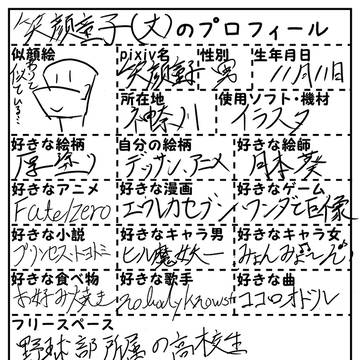 笑顔童子(丈)のプロフィール
似顔絵 pixiv名 性別 生年月日
似ている… 笑顔童子 男 11月11日
所在地 使用ソフト・機材
神奈川 イラスタ
好きな絵柄 自分の絵柄 好きな絵師
厚塗り デッサン、アニメ 月本葵
好きなアニメ 好きな漫画 好きなゲーム
Fate/zero エウレカセブン ワンダと巨像
好きな小説 好きなキャラ男 好きなキャラ女
プリンセス・トヨトミ ヒル魔妖一
好きな食べ物 好きな歌手 好きな曲
お好み焼き nobodyknows+ ココロオドル
フリースペース
野球部所属の高校生